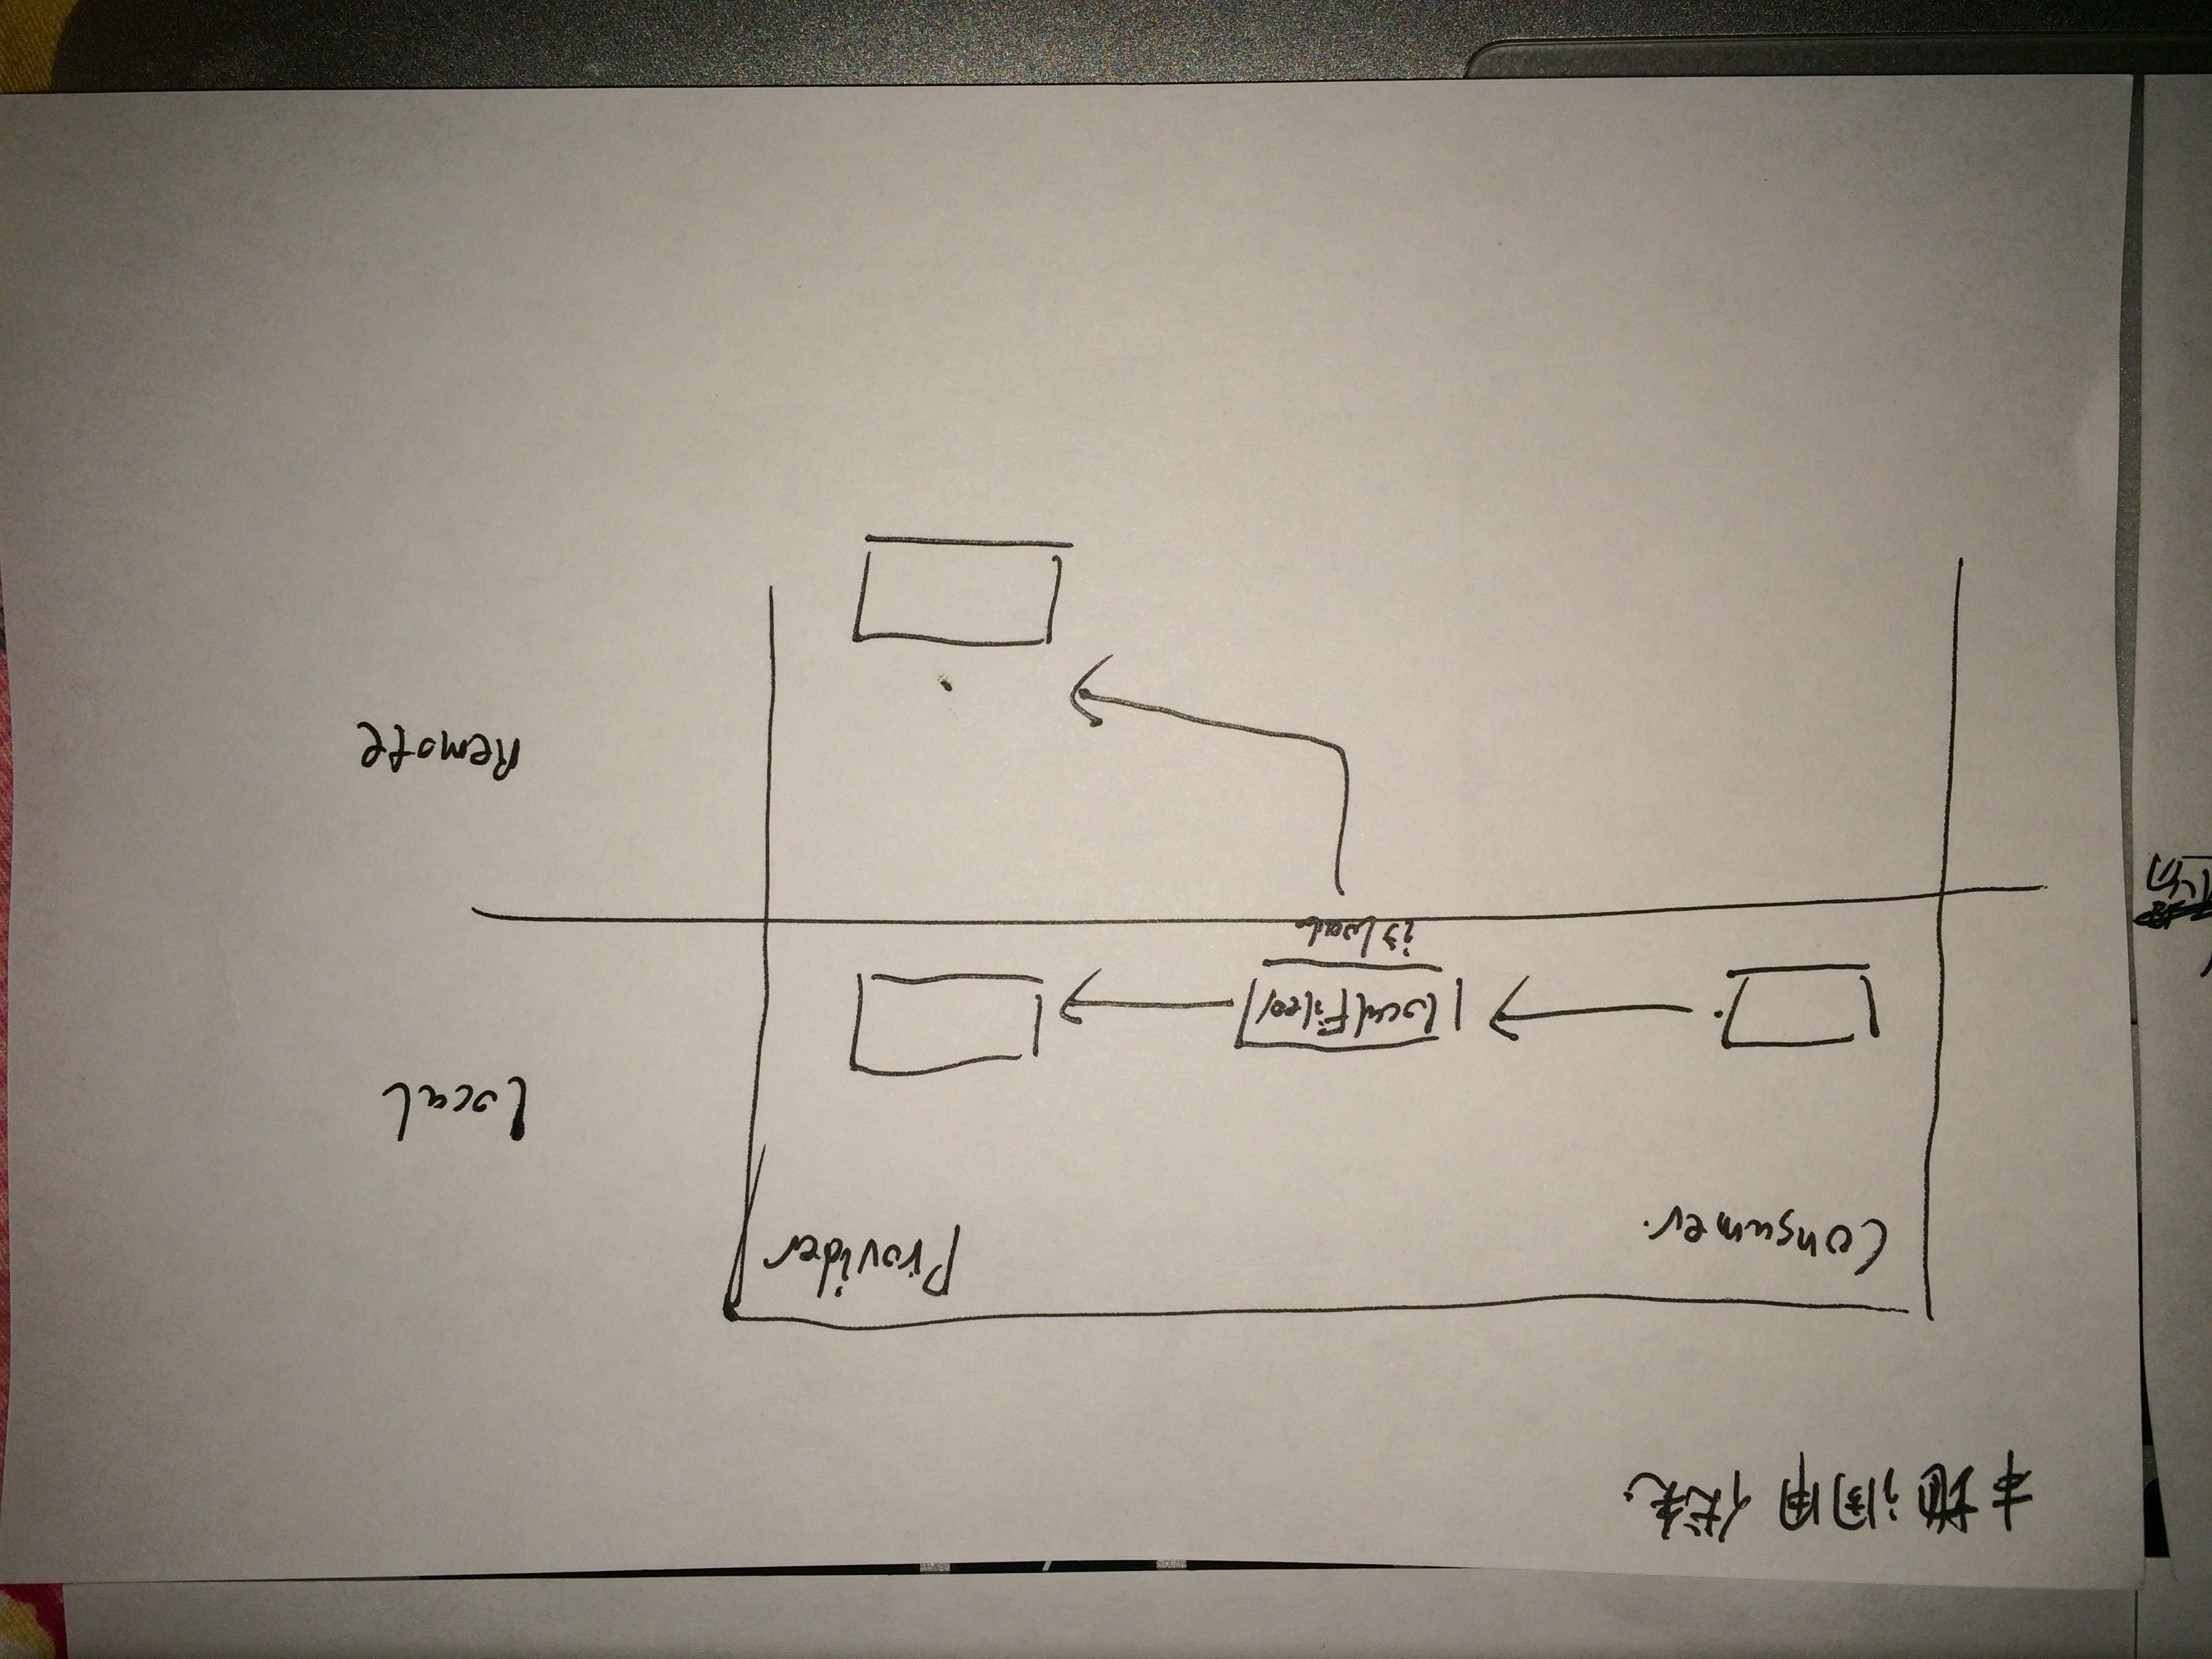 本地调用优先.
Consumer.
Provider
Local
localFileer
Remote